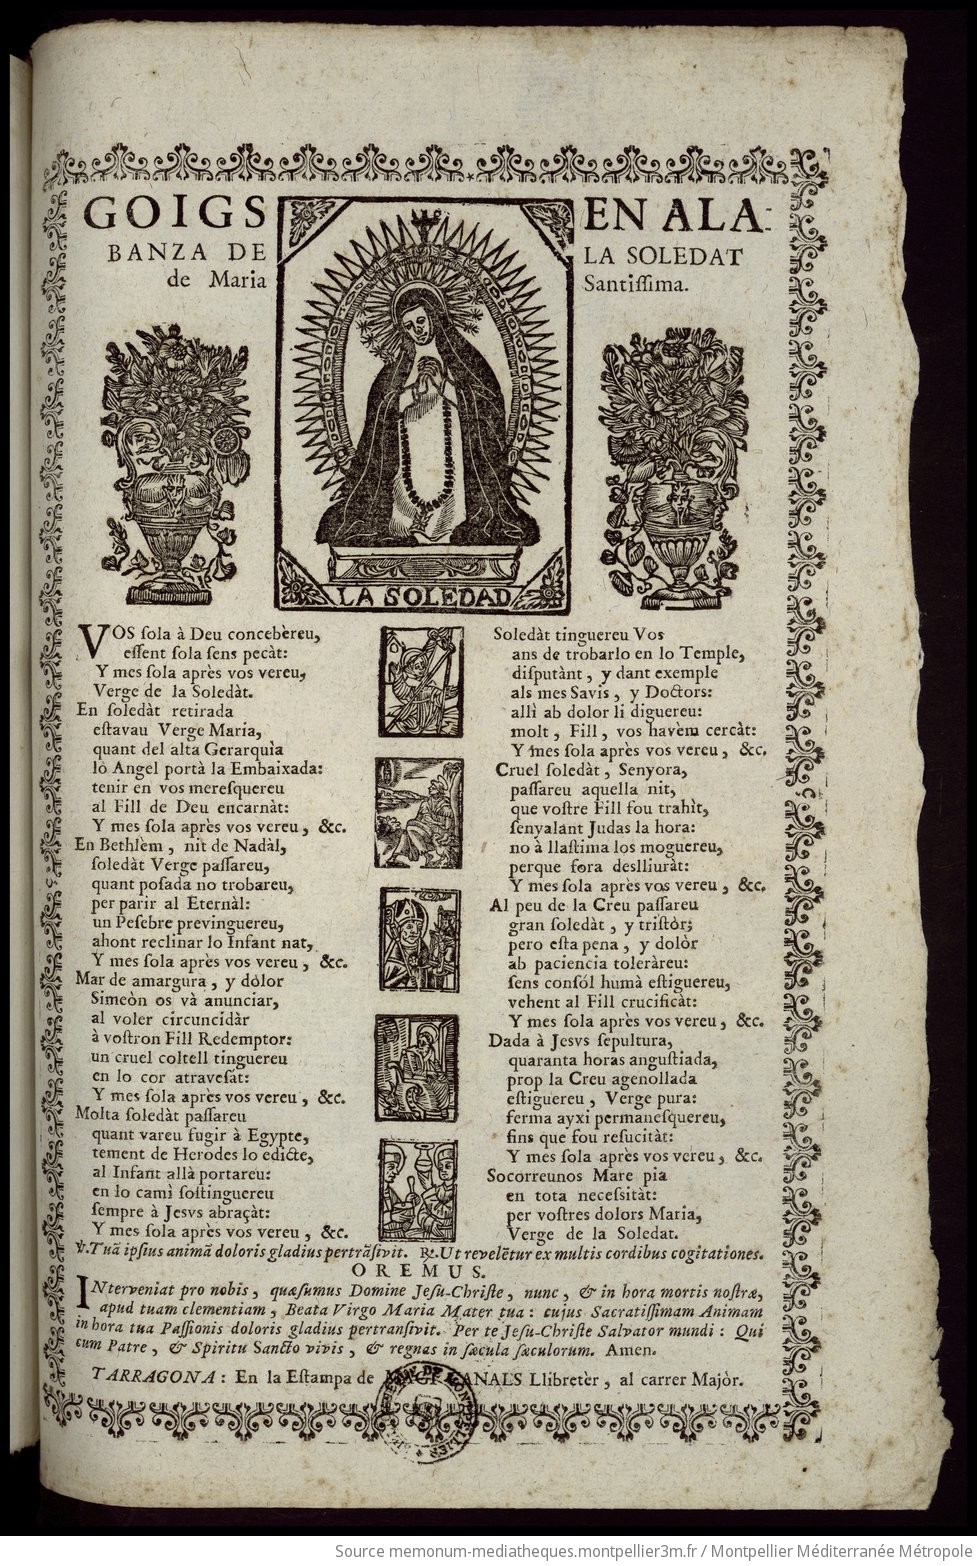 GOIGS EN ALA-
BANZA DE LA SOLEDAT
de Maria Santiſſima.
LA SOLEDAD
VOS ſola à Deu concebèreu,
eſſent ſola ſens pecàt:
Y mes ſola après vos vereu,
Verge de la Soledàt.
En ſoledàt retirada
eſtavau Verge Maria,
quant del alta Gerarquìa
lo Angel portà la Embaixada:
tenir en vos mereſquereu
al Fill de Deu encarnàt:
Y mes ſola après vos vereu, &c.
En Bethlèm, nit de Nadàl,
ſoledàt Verge paſſareu,
quant poſada no trobareu,
per parir al Eternàl:
un Peſebre previnguereu,
ahont reclinar lo Infant nat,
Y mes ſola après vos vereu, &c.
Mar de amargura, y dólor
Simeòn os và anunciar,
al voler circuncidàr
à voſtron Fill Redemptor:
un cruel coltell tinguereu
en lo cor atraveſàt:
Y mes ſola après vos vereu, &c.
Molta ſoledàt paſſareu
quant vareu fugir à Egypte,
tement de Herodes lo edicte,
al Infant allà portareu:
en lo camì ſoſtinguereu
ſempre à Jesvs abraçàt:
Y mes ſola après vos vereu, &c.
Soledàt tinguereu Vos
ans de trobarlo en lo Temple,
diſputànt, y dant exemple
als mes Savis, y Doctors:
allì ab dolor li diguereu:
molt, Fill, vos havèm cercàt:
Y mes ſola après vos vereu, &c.
Cruel ſoledàt, Senyora,
paſſareu aquella nit,
que voſtre Fill fou trahìt,
ſenyalant Judas la hora:
no à llaſtima los moguereu,
perque fora deslliuràt:
Y mes ſola après vos vereu, &c.
Al peu de la Creu paſſareu
gran ſoledàt, y triſtòr;
pero eſta pena, y dolòr
ab paciencia toleràreu:
ſens conſól humà eſtiguereu,
vehent al Fill crucificàt:
Y mes ſola après vos vereu, &c.
Dada à Jesvs ſepultura,
quaranta horas anguſtiada,
prop la Creu agenollada
eſtiguereu, Verge pura:
ferma ayxi permaneſquereu,
fins que fou reſucitàt:
Y mes ſola après vos vereu, &c.
Socorreunos Mare pia
en tota neceſsitàt:
per voſtres dolors Maria,
Verge de la Soledat.
℣.Tuã ipſius animã doloris gladius pertrãſivit. ℟.Ut revelẽtur ex multis cordibus cogitationes.
OREMUS.
INterveniat pro nobis, quæſumus Domine Jeſu-Chriſte, nunc, & in hora mortis noſtræ,
apud tuam clementiam, Beata Virgo Maria Mater tua: cujus Sacratiſſimam Animam
in hora tua Paſſionis doloris gladius pertranſivit. Per te Jeſu-Chriſte Salvator mundi: Qui
cum Patre, & Spiritu Sancto vivis, & regnas in ſæcula ſæculorum. Amen.
TARRAGONA: En la Eſtampa de CANALS Llibretèr, al carrer Majòr.
Source memonum-mediatheques.montpellier3m.fr / Montpellier Méditerranée Métropole